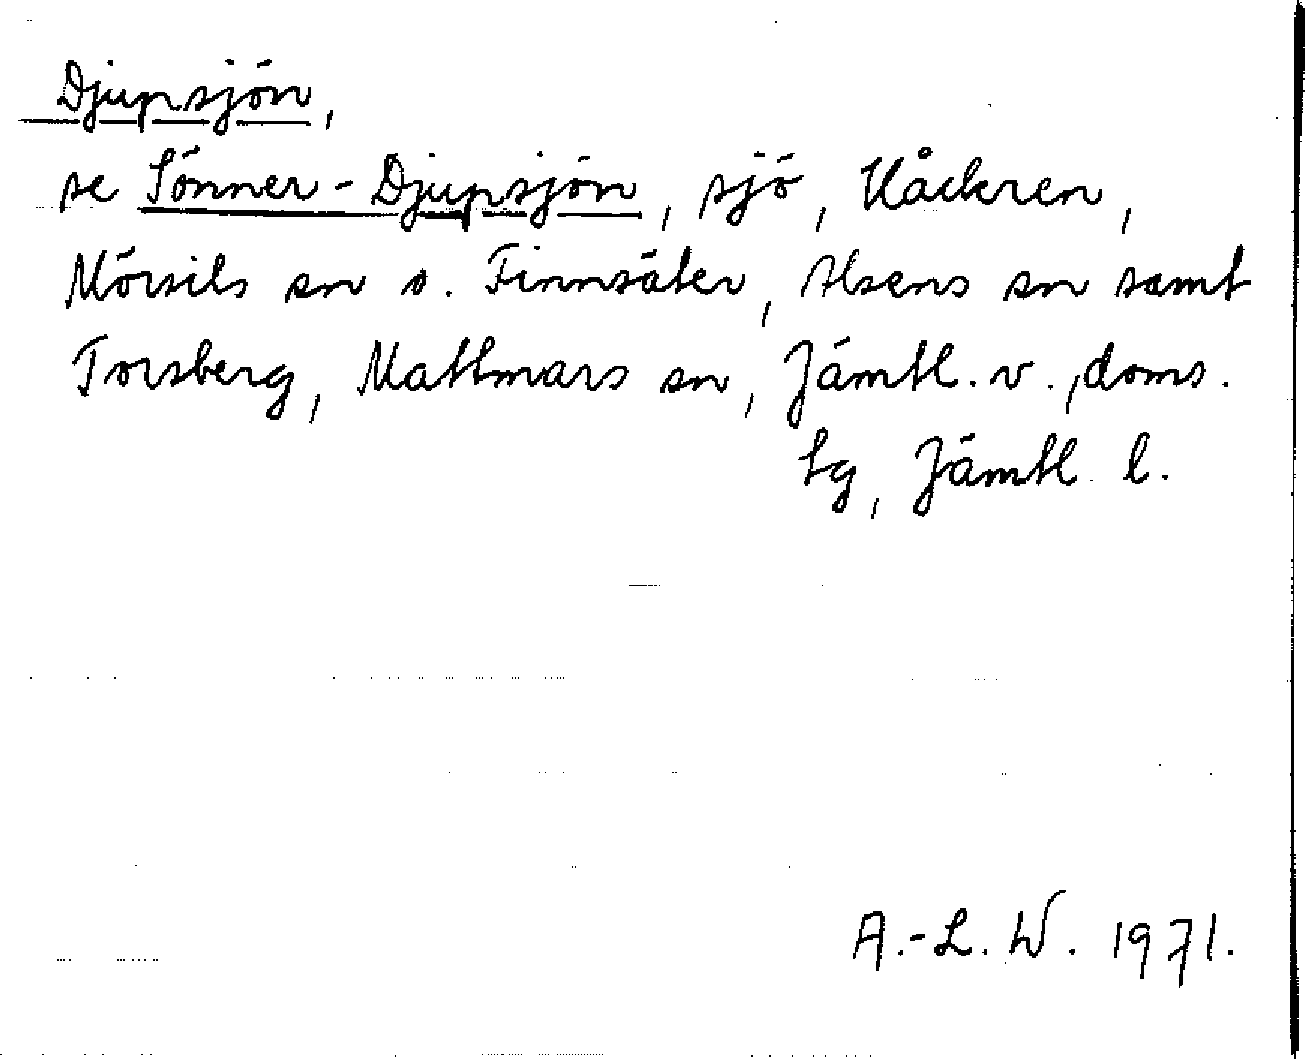 Djupsjön,
se Sönner-Djupsjön, sjö, Kåckren,
Mörsils sn o. Finnsäter, Alsens sn samt
Torsberg, Mattmars sn, Jämtl. v., doms.
tg, Jämtl. l.
A.-L. W. 1971.